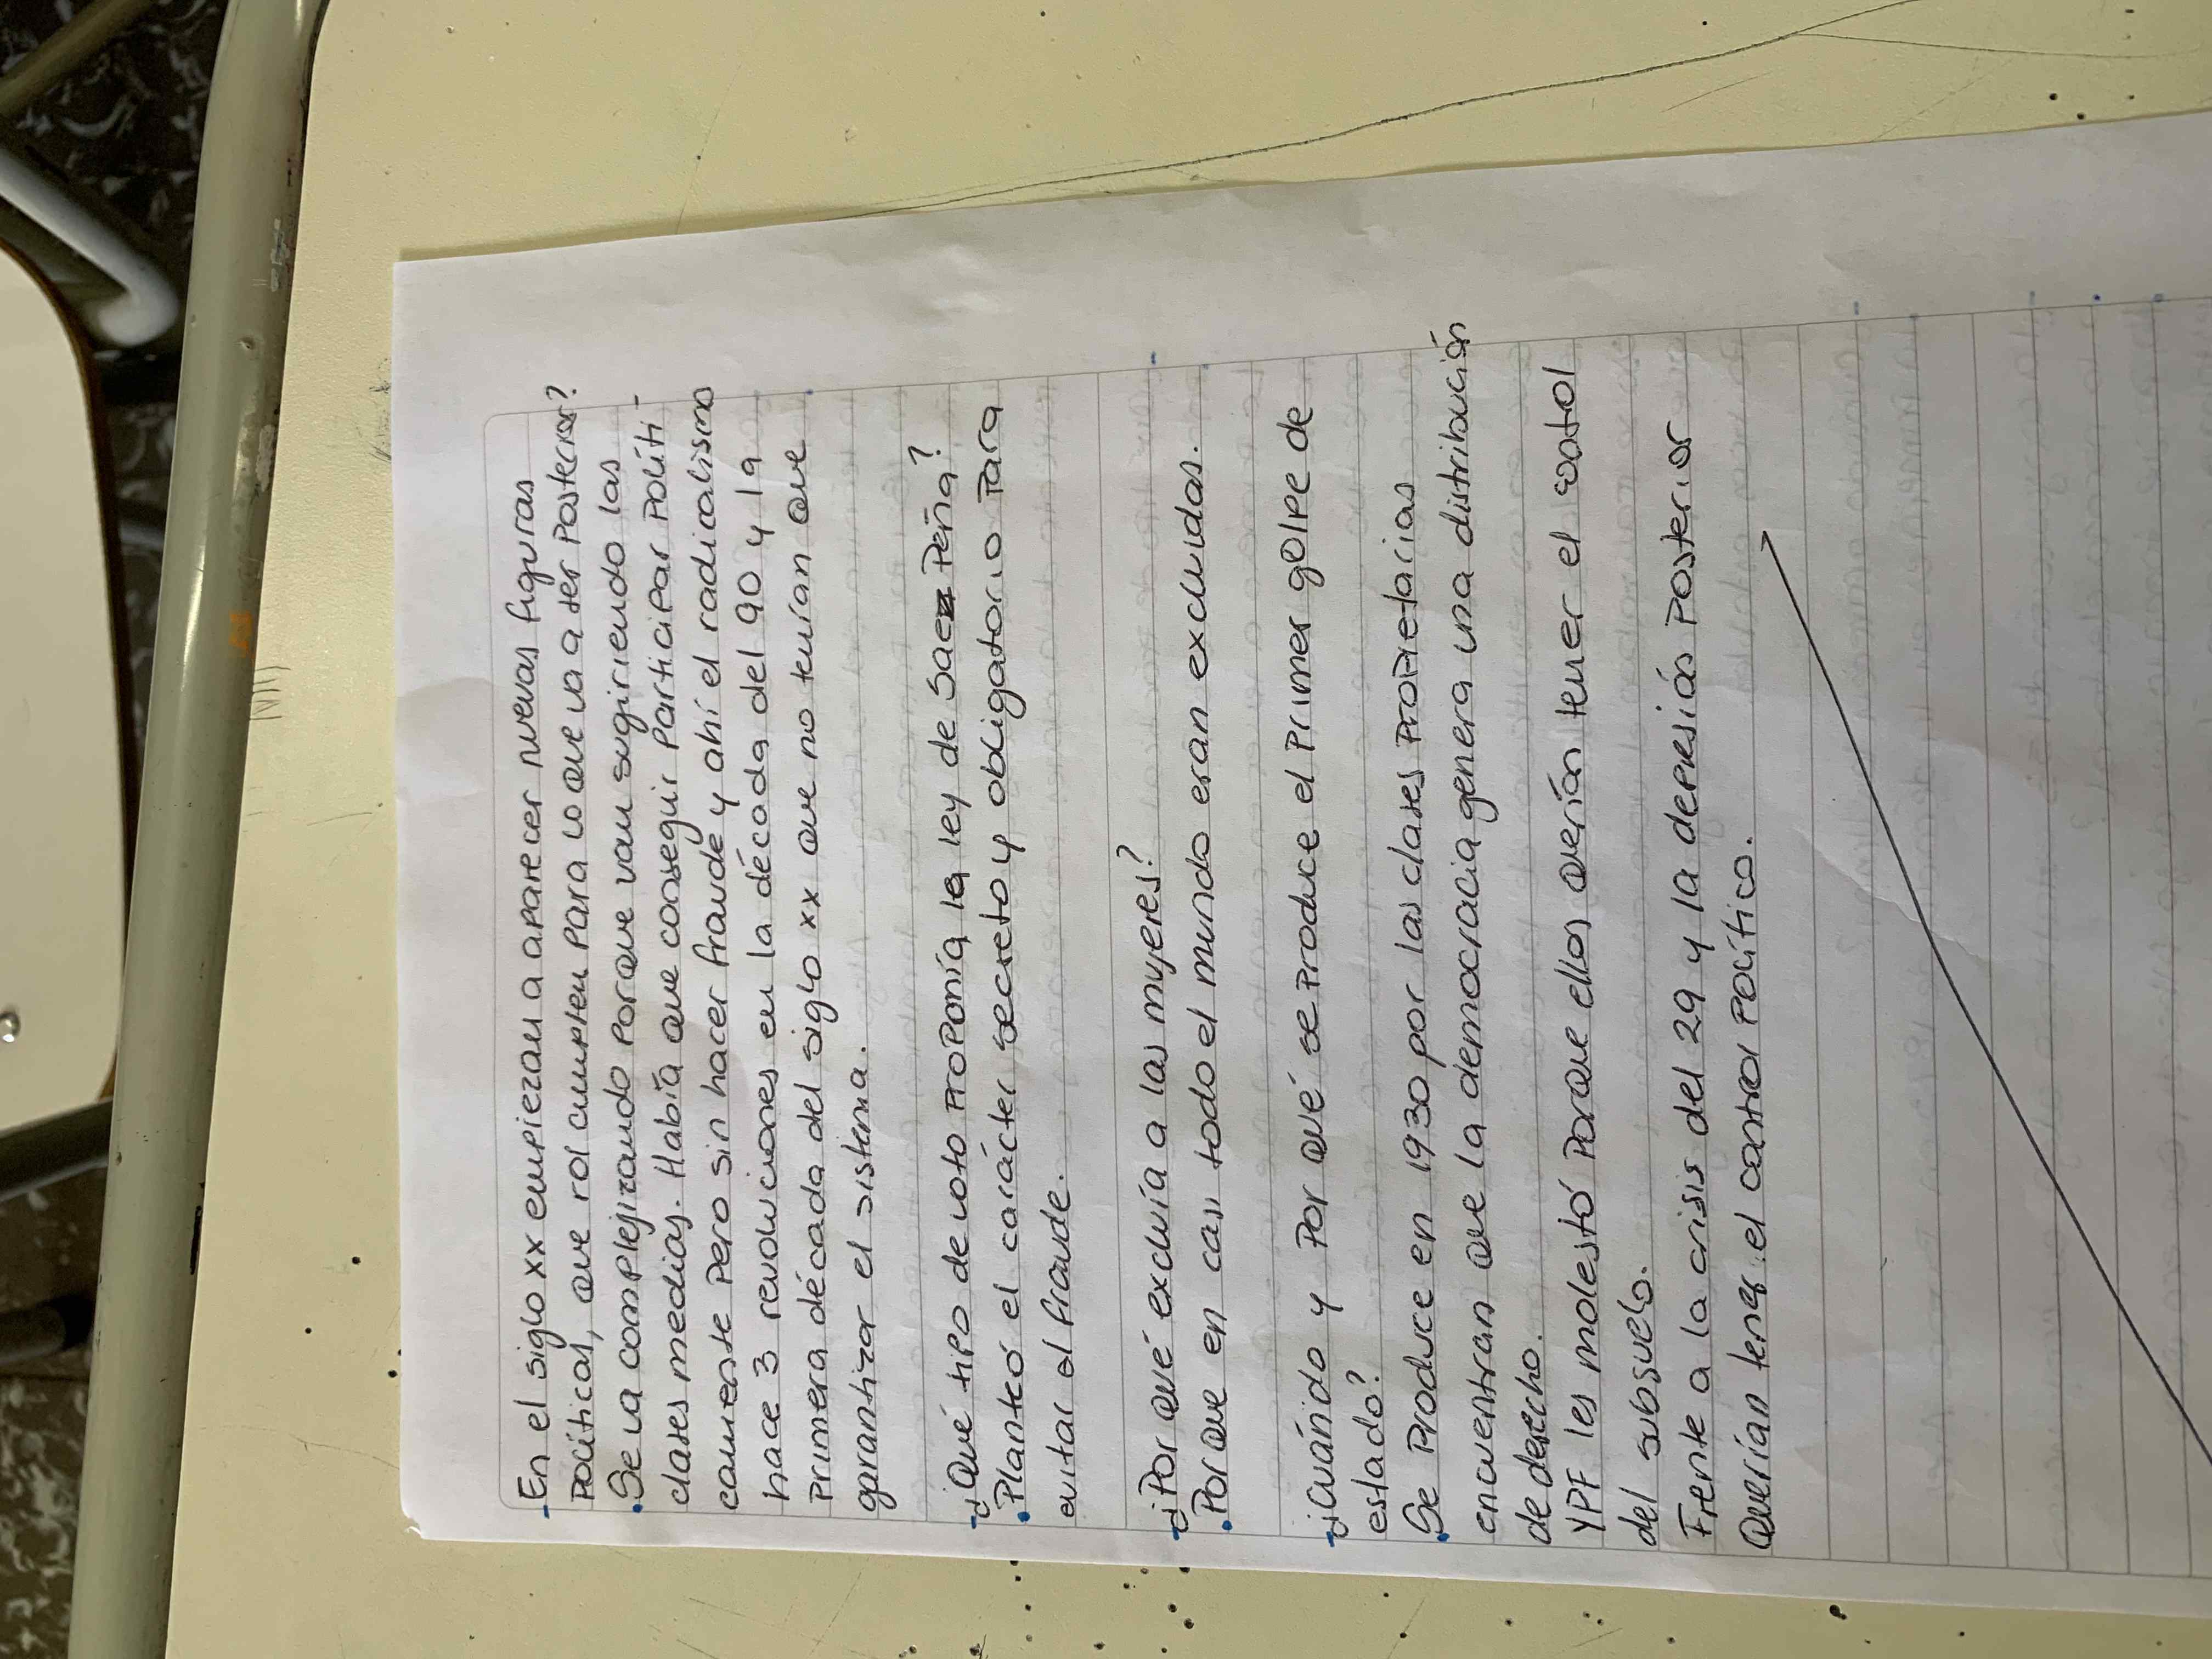 - En el siglo xx empiezan a aparecer nuevas figuras
políticas, que rol cumplen para lo que va a ser posterior?
• Se va complejizando porque van sugiriendo las
clases medias. Había que conseguir participar políti-
camente pero sin hacer fraude y ahí el radicalismo
hace 3 revoluciones en la década del 90 y la
primera década del siglo xx que no tenían que
garantizar el sistema.
- ¿Qué tipo de voto proponía la ley de Saez Peña?
• Planteó el carácter secreto y obligatorio para
evitar el fraude.
- ¿Por qué excluía a las mujeres?
• Porque en casi todo el mundo eran excluidas.
- ¿Cuándo y por qué se produce el primer golpe de
estado?
• Se produce en 1930 por las clases propietarias
encuentran que la democracia genera una distribución
de derecho.
YPF les molestó porque ellos querían tener el control
del subsuelo.
Frente a la crisis del 29 y la depresión posterior
Querían tener el control político.